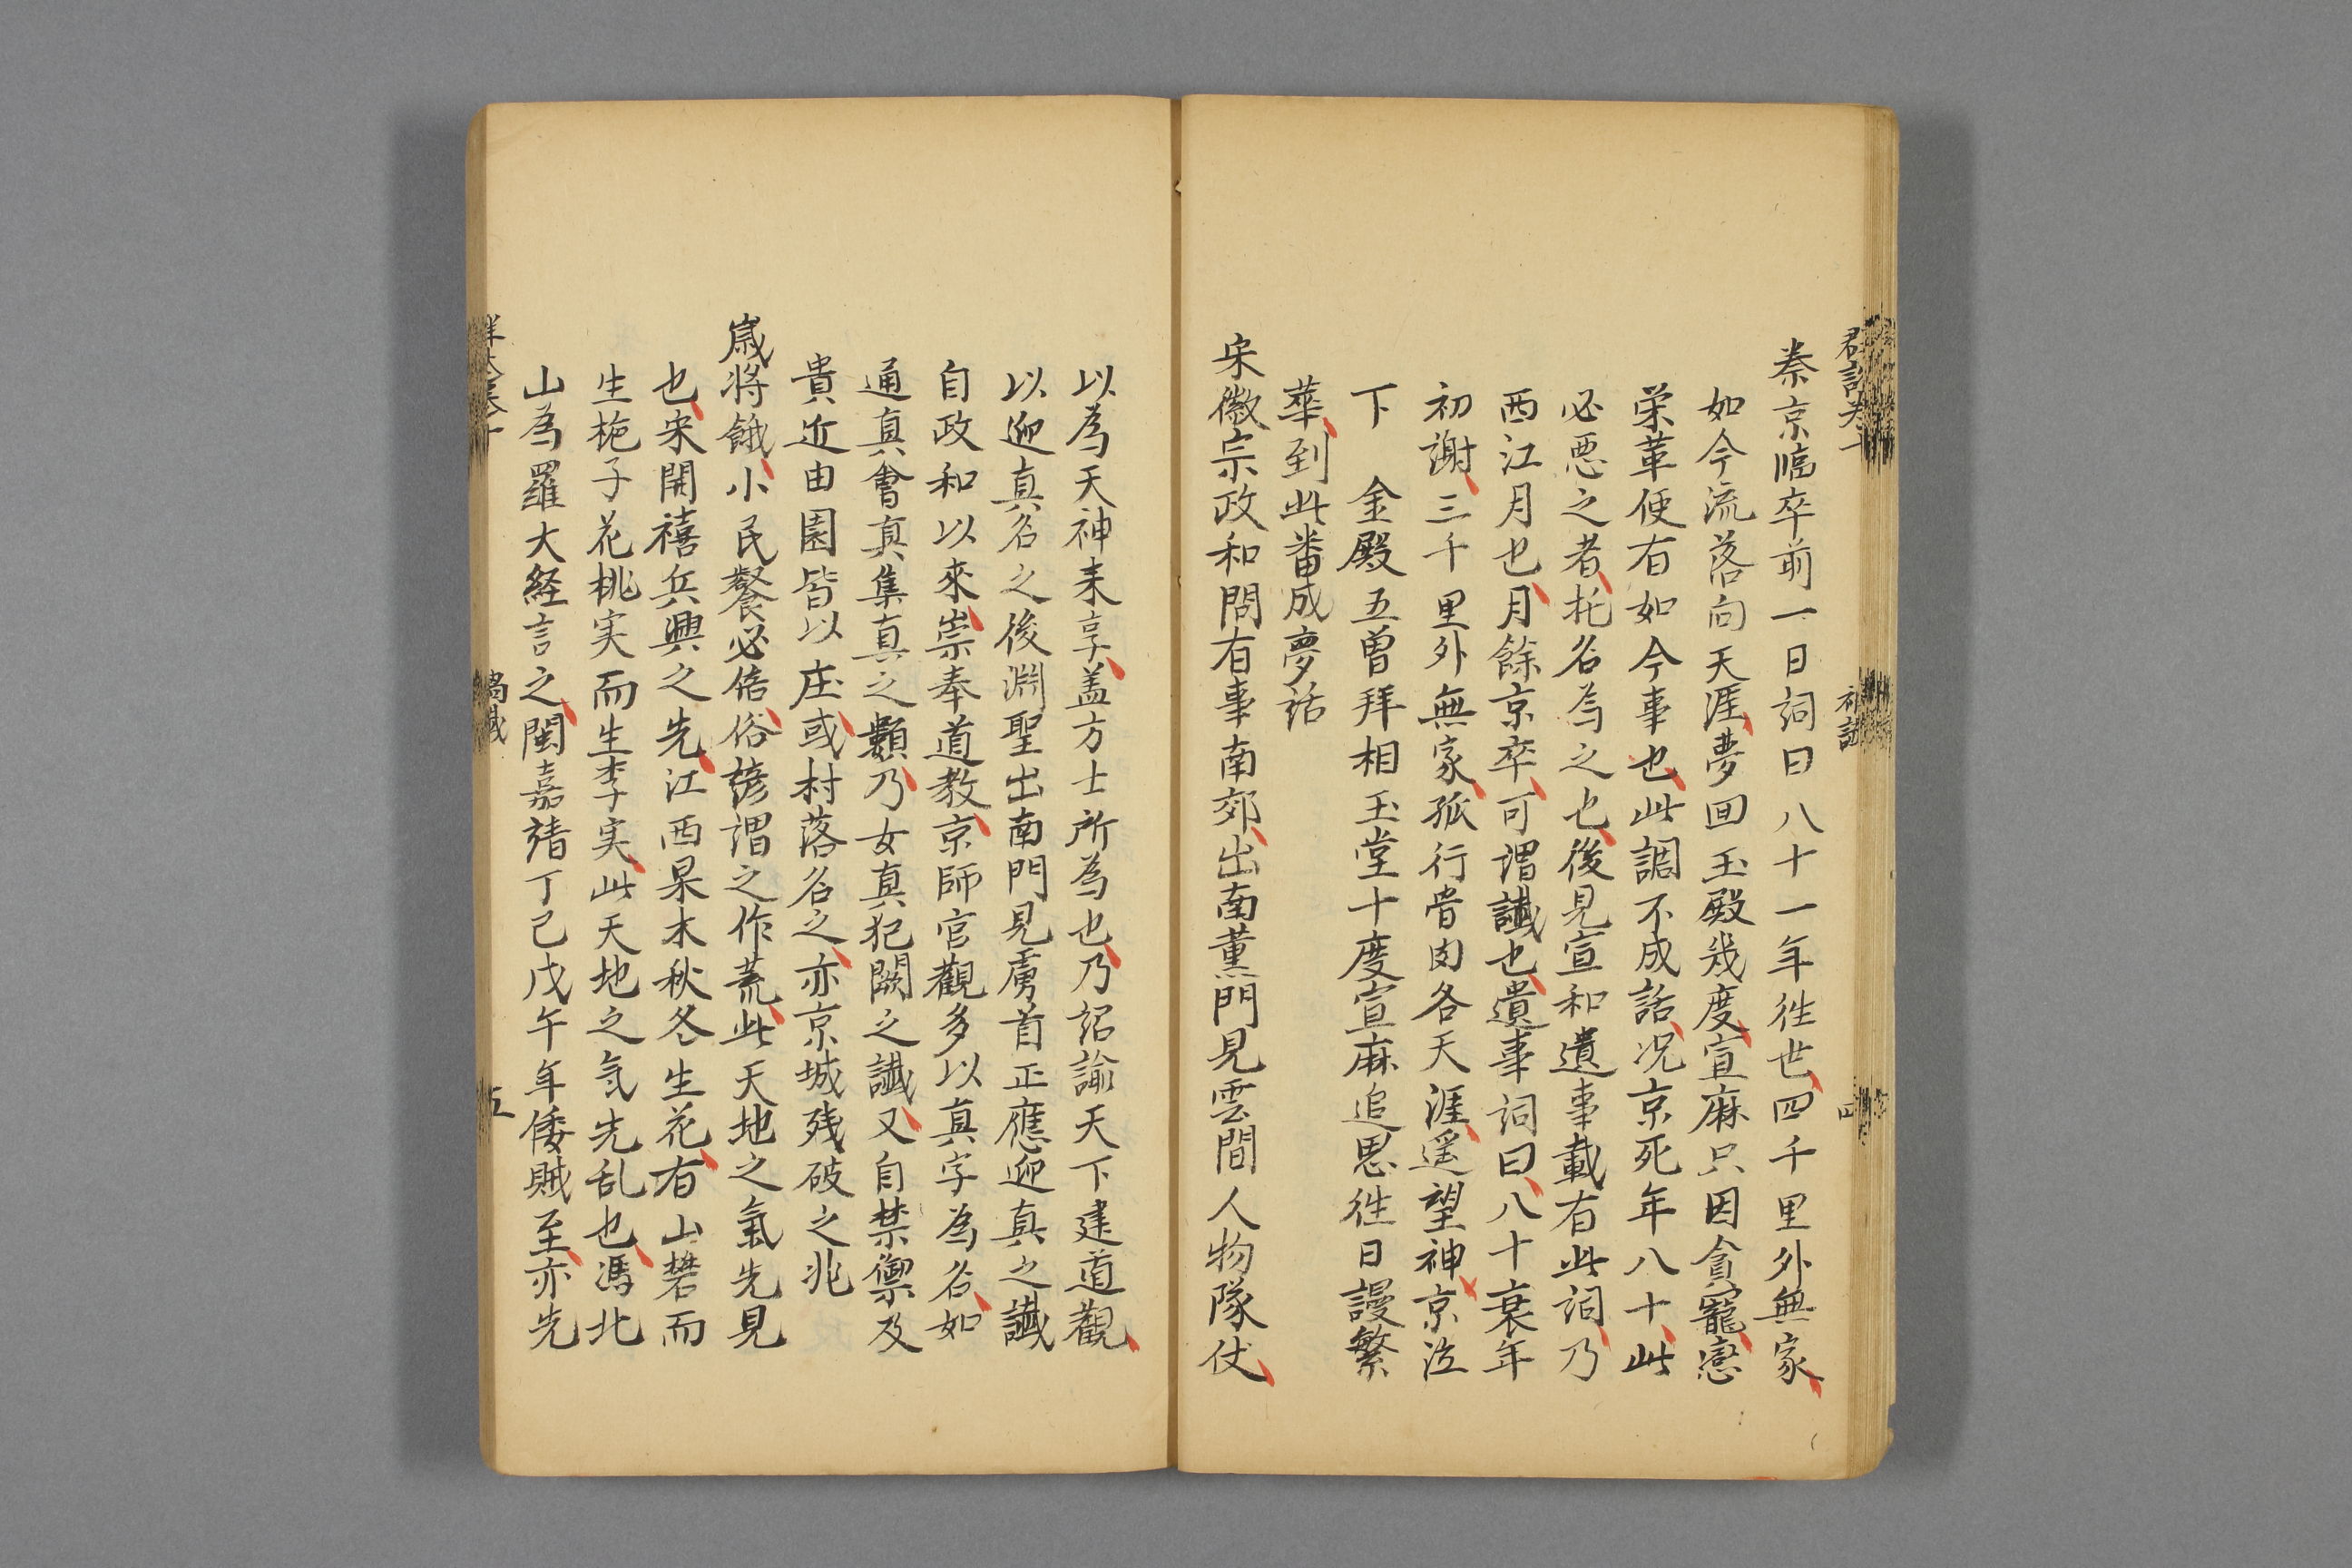 秦京臨卒前一日詞曰八十一年徃世四千里外無家
如今流落向天涯夢回玉殿幾度宣麻只因貪寵戀
荣華便有如今事也此調不成話况京死年八十此
必惡之者托名為之也後見宣和遺事載有此詞乃
西江月也月餘京卒可謂讖也遺事詞曰八十衰年
初謝三千里外無家孤行骨肉各天涯遥望神京泣
下　金殿五曾拜相玉堂十度宣麻追思徃日謾繁
華到此番成夢話
宋徽宗政和間有事南郊出南薰門見雲間人物隊仗
以為天神来享盖方士所為也乃詔諭天下建道觀
以迎真名之後淵聖出南門見虜首正應迎真之讖
自政和以來崇奉道教京師官觀多以真字為名如
通真會真集真之類乃女真犯闕之讖又自禁禦及
貴近由園皆以庄或村落名之亦京城残破之兆
歳將餓小民餐必倍俗諺謂之作荒此天地之氣先見
也宋開禧兵興之先江西果木秋冬生花有山礬而
生梔子花桃実而生李実此天地之氣先乱也馮北
山為羅大経言之閩嘉靖丁巳戊午年倭賊至亦先